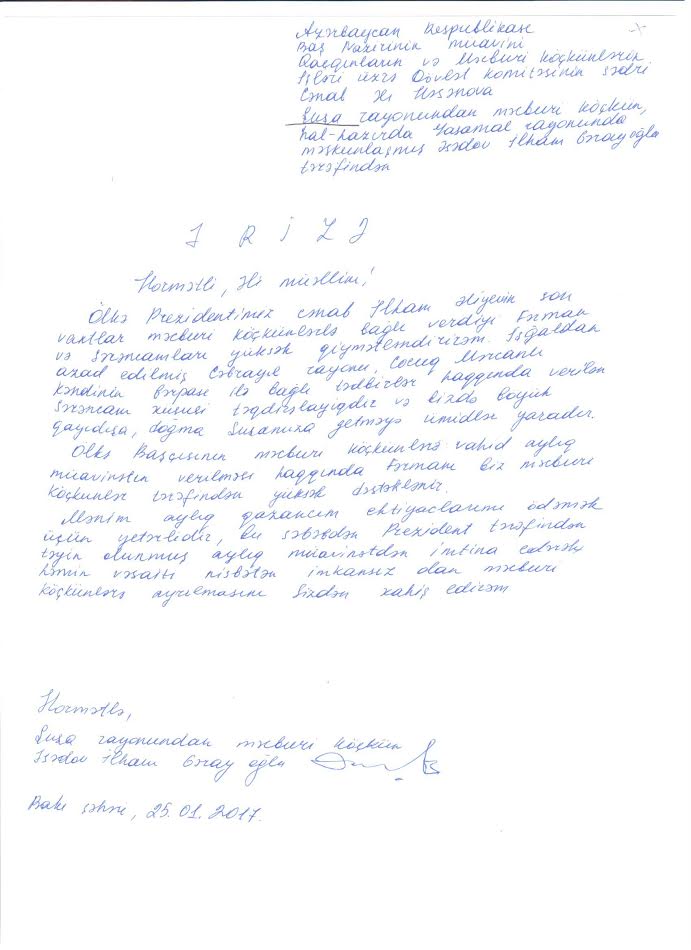 Azərbaycan Respublikası
Baş Nazirinin müavini
Qaçqınların və Məcburi Köçkünlərin
İşləri üzrə Dövlət Komitəsinin sədri
Cənab Əli Həsənova
Şuşa rayonundan məcburi köçkün,
hal-hazırda Yasamal rayonunda
məskunlaşmış Əsədov İlham Gərayoğlu
tərəfindən
Ə R İ Z Ə
Hörmətli, Əli müəllim!
Ölkə Prezidentimiz cənab İlham Əliyevin son
vaxtlar məcburi köçkünlərlə bağlı verdiyi Fərman
və Sərəncamları yüksək qiymətləndirirəm. İşğaldan
azad edilmiş Cəbrayıl rayonu, Cocuq Mərcanlı
kəndinin bərpası ilə bağlı tədbirlər haqqında verilən
Sərəncam xüsusi təqdirəlayiqdir və bizdə böyük
qayıdışa, doğma Şuşamıza getməyə ümidlər yaradır.
Ölkə Başçısının məcburi köçkünlərə vahid aylıq
müavinətin verilməsi haqqında Fərmanı biz məcburi
köçkünlər tərəfindən yüksək dəstəklənir.
Mənim aylıq qazancım ehtiyaclarımı ödəmək
üçün yetərlidir, bu səbəbdən Prezident tərəfindən
təyin olunmuş aylıq müavinətdən imtina edərək
həmin vəsaiti nisbətən imkansız olan məcburi
köçkünlərə ayrılmasını Sizdən xahiş edirəm
Hörmətlə,
Şuşa rayonundan məcburi köçkün
Əsədov İlham Gəray oğlu
Bakı şəhəri, 25.01.2017.